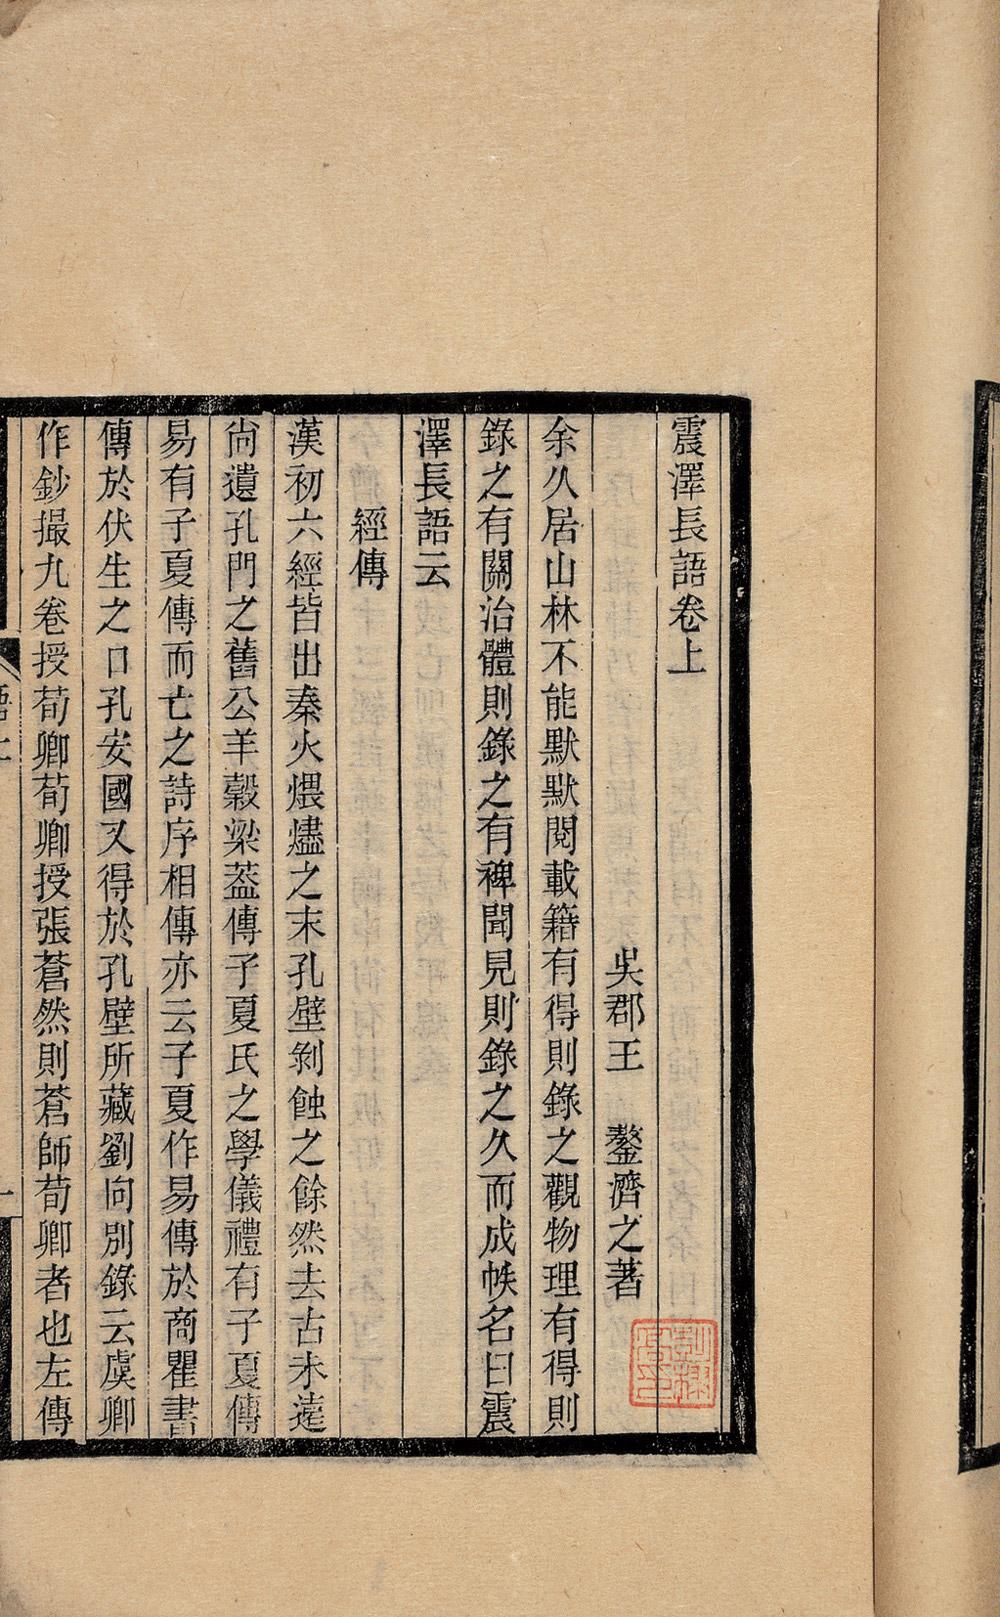 震澤長語卷上
吳郡王　鏊濟之著
余久居山林不能默默閱載籍有得則錄之觀物理有得則
錄之有關治體則錄之有裨聞見則錄之久而成帙名曰震
澤長語云
經傳
漢初六經皆出秦火煨燼之末孔壁剝蝕之餘然去古未遠
尚遺孔門之舊公羊穀梁葢傳子夏氏之學儀禮有子夏傳
易有子夏傳而亡之詩序相傳亦云子夏作易傳於商瞿書
傳於伏生之口孔安國又得於孔壁所藏劉向別錄云虞卿
作鈔撮九卷授荀卿荀卿授張蒼然則蒼師荀卿者也左傳
語上
一